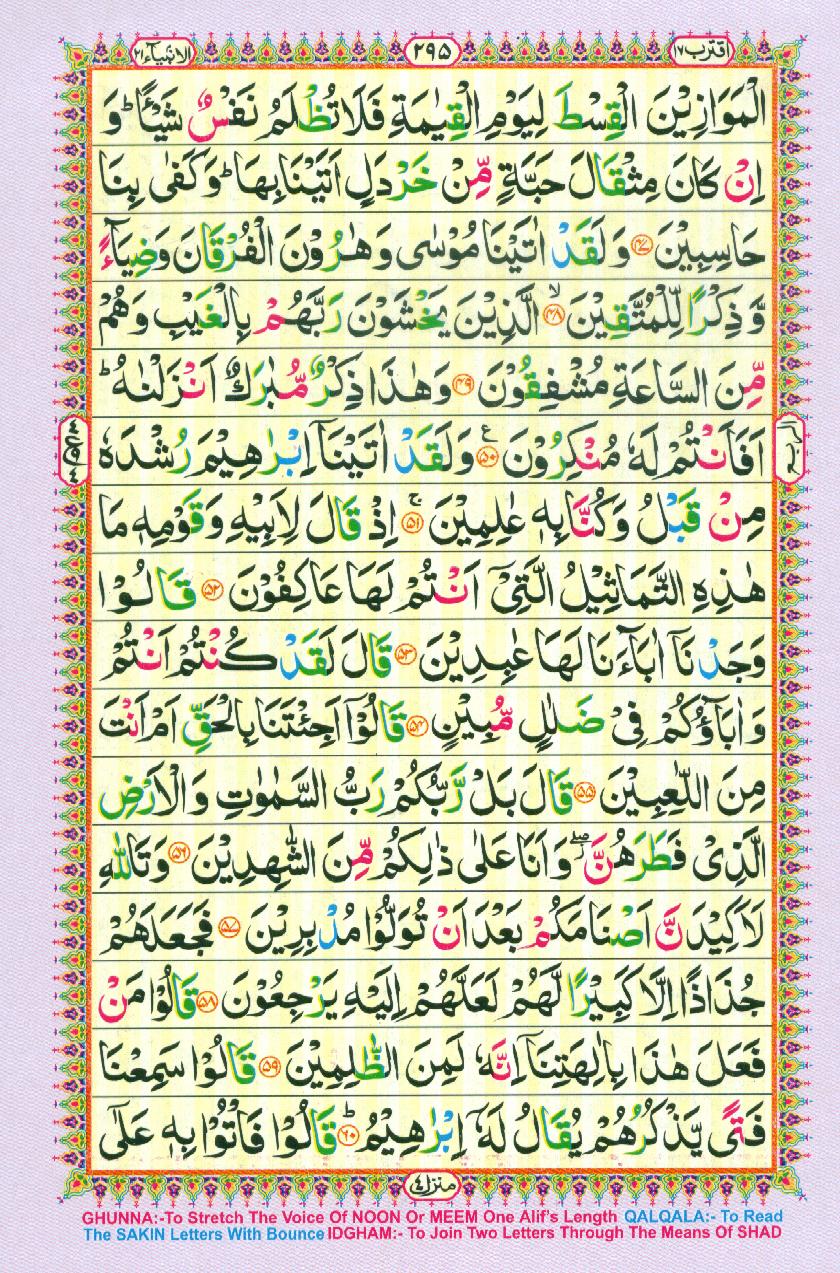 اقترب ١٧
٢٩٥
الانبيآء ٢١
الْمَوَازِيْنَ الْقِسْطَ لِيَوْمِ الْقِيٰمَةِ فَلَا تُظْلَمُ نَفْسٌ شَيْـًٔا ؕ وَ
اِنْ كَانَ مِثْقَالَ حَبَّةٍ مِّنْ خَرْدَلٍ اَتَيْنَا بِهَا ؕ وَكَفٰى بِنَا
حَاسِبِيْنَ ﴿۴۷﴾ وَلَقَدْ اٰتَيْنَا مُوْسٰى وَهٰرُوْنَ الْفُرْقَانَ وَضِيَآءً
وَّذِكْرًا لِّلْمُتَّقِيْنَ ﴿۴۸﴾ ۙ الَّذِيْنَ يَخْشَوْنَ رَبَّهُمْ بِالْغَيْبِ وَهُمْ
مِّنَ السَّاعَةِ مُشْفِقُوْنَ ﴿۴۹﴾ وَهٰذَا ذِكْرٌ مُّبٰرَكٌ اَنْزَلْنٰهُ ؕ
اَفَاَنْتُمْ لَهٗ مُنْكِرُوْنَ ﴿۵۰﴾ ع وَلَقَدْ اٰتَيْنَآ اِبْرٰهِيْمَ رُشْدَهٗ
مِنْ قَبْلُ وَكُنَّا بِهٖ عٰلِمِيْنَ ﴿۵۱﴾ ۚ اِذْ قَالَ لِاَبِيْهِ وَقَوْمِهٖ مَا
هٰذِهِ التَّمَاثِيْلُ الَّتِيْٓ اَنْتُمْ لَهَا عَاكِفُوْنَ ﴿۵۲﴾ قَالُوْا
وَجَدْنَآ اٰبَآءَنَا لَهَا عٰبِدِيْنَ ﴿۵۳﴾ قَالَ لَقَدْ كُنْتُمْ اَنْتُمْ
وَاٰبَآؤُكُمْ فِيْ ضَلٰلٍ مُّبِيْنٍ ﴿۵۴﴾ قَالُوْٓا اَجِئْتَنَا بِالْحَقِّ اَمْ اَنْتَ
مِنَ اللّٰعِبِيْنَ ﴿۵۵﴾ قَالَ بَلْ رَّبُّكُمْ رَبُّ السَّمٰوٰتِ وَالْاَرْضِ
الَّذِيْ فَطَرَهُنَّ ۖ وَاَنَا عَلٰى ذٰلِكُمْ مِّنَ الشّٰهِدِيْنَ ﴿۵۶﴾ وَتَاللّٰهِ
لَاَكِيْدَنَّ اَصْنَامَكُمْ بَعْدَ اَنْ تُوَلُّوْا مُدْبِرِيْنَ ﴿۵۷﴾ فَجَعَلَهُمْ
جُذَاذًا اِلَّا كَبِيْرًا لَّهُمْ لَعَلَّهُمْ اِلَيْهِ يَرْجِعُوْنَ ﴿۵۸﴾ قَالُوْا مَنْ
فَعَلَ هٰذَا بِاٰلِهَتِنَآ اِنَّهٗ لَمِنَ الظّٰلِمِيْنَ ﴿۵۹﴾ قَالُوْا سَمِعْنَا
فَتًى يَّذْكُرُهُمْ يُقَالُ لَهٗٓ اِبْرٰهِيْمُ ﴿۶۰﴾ ؕ قَالُوْا فَاْتُوْا بِهٖ عَلٰٓى
منزل ٤
GHUNNA:-To Stretch The Voice Of NOON Or MEEM One Alif's Length QALQALA:- To Read
The SAKIN Letters With Bounce IDGHAM:- To Join Two Letters Through The Means Of SHAD